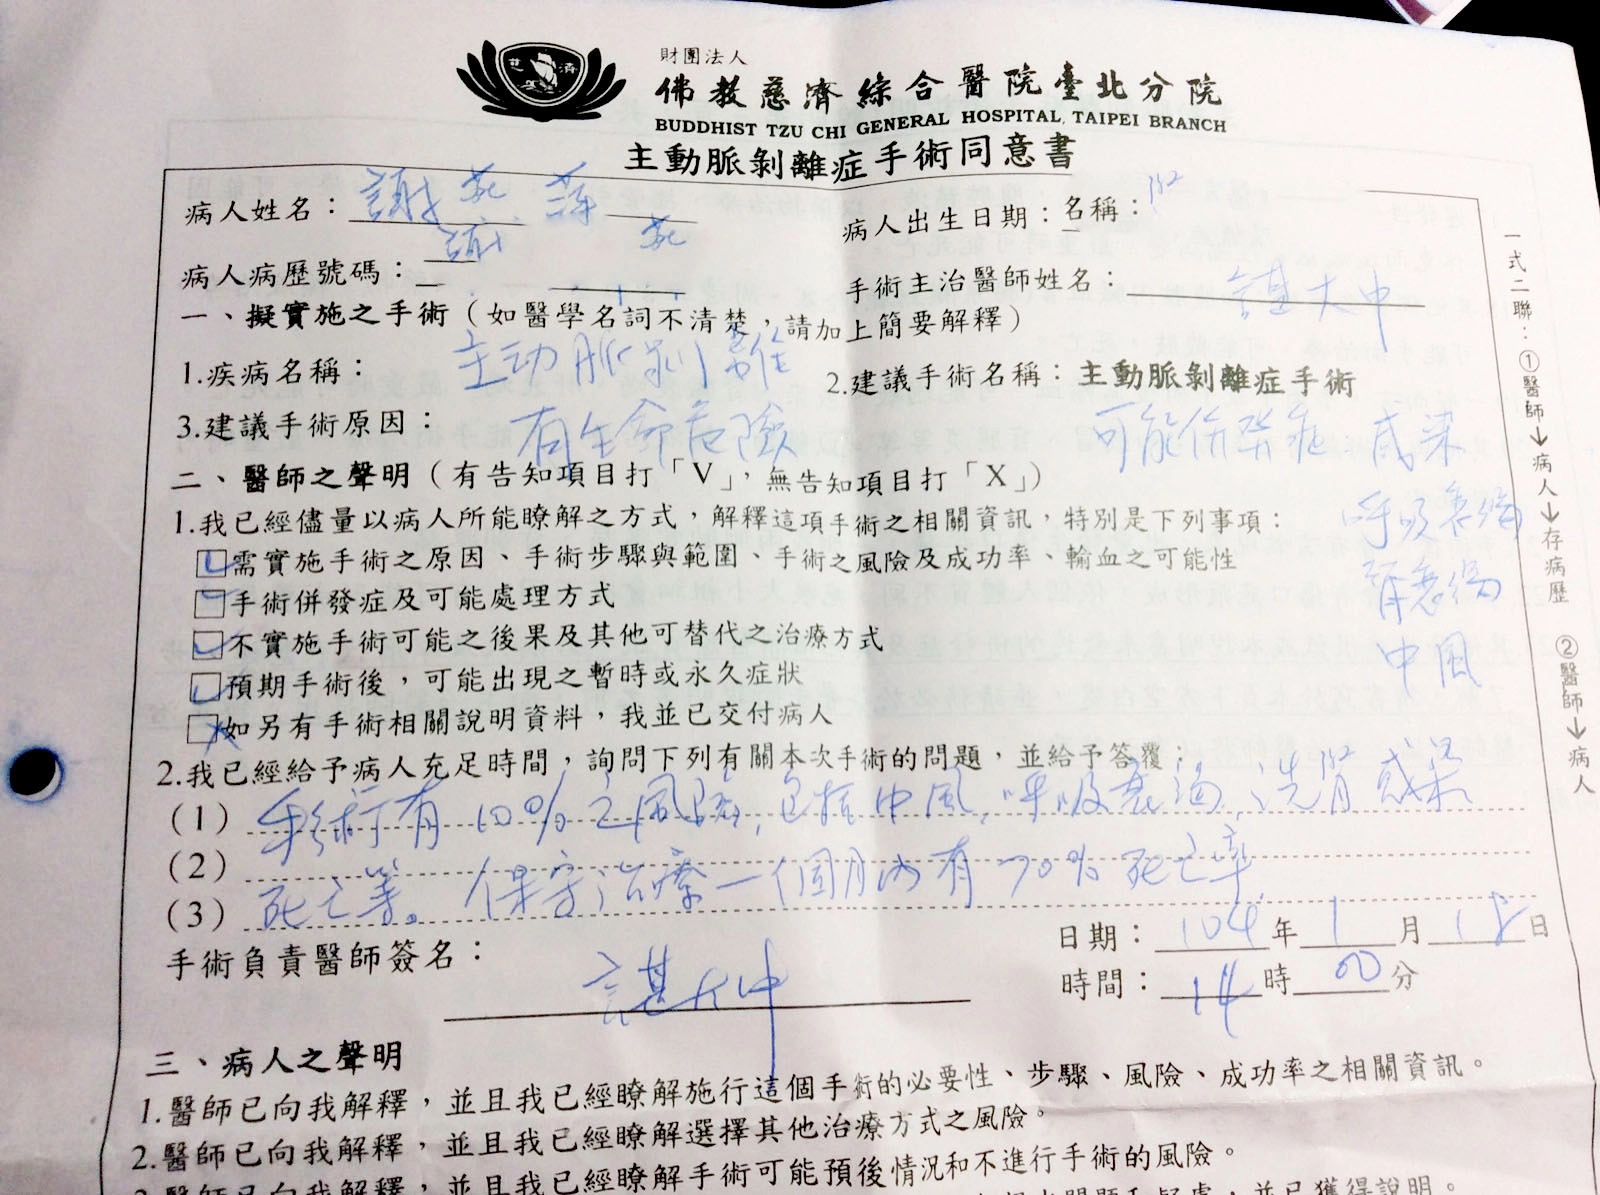 財團法人
佛教慈濟綜合醫院臺北分院
BUDDHIST TZU CHI GENERAL HOSPITAL, TAIPEI BRANCH
主動脈剝離症手術同意書
病人姓名：謝
病人出生日期：名稱：
病人病歷號碼：
手術主治醫師姓名：諶大中
一、擬實施之手術（如醫學名詞不清楚，請加上簡要解釋）
1.疾病名稱：主动脈剝離
2.建議手術名稱：主動脈剝離症手術
3.建議手術原因：有生命危險
可能併發症 感染
呼吸衰竭
腎衰竭
中風
二、醫師之聲明（有告知項目打「V」，無告知項目打「X」）
1.我已經儘量以病人所能瞭解之方式，解釋這項手術之相關資訊，特別是下列事項：
需實施手術之原因、手術步驟與範圍、手術之風險及成功率、輸血之可能性
手術併發症及可能處理方式
不實施手術可能之後果及其他可替代之治療方式
預期手術後，可能出現之暫時或永久症狀
如另有手術相關說明資料，我並已交付病人
2.我已經給予病人充足時間，詢問下列有關本次手術的問題，並給予答覆：
(1) 有10%之風險，包括中風，呼吸衰竭，洗腎感染
(2)
(3) 死亡等。保守治療一個月內有70%死亡率
手術負責醫師簽名：諶大中
日期：104年1月12日
時間：14時00分
一式二聯：①醫師→病人→存病歷 ②醫師→病人
三、病人之聲明
1.醫師已向我解釋，並且我已經瞭解施行這個手術的必要性、步驟、風險、成功率之相關資訊。
2.醫師已向我解釋，並且我已經瞭解選擇其他治療方式之風險。
3.醫師已向我解釋，並且我已經瞭解手術可能預後情況和不進行手術的風險。